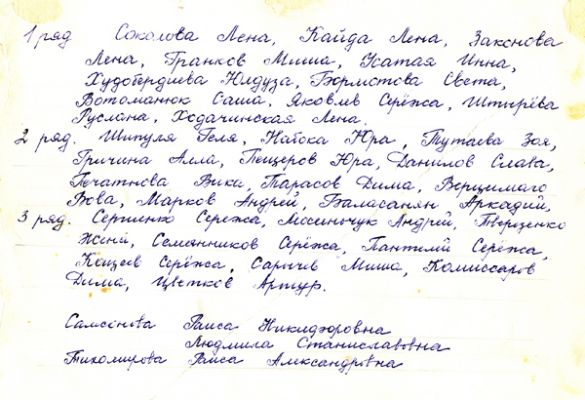 1 ряд Соколова Лена, Кайда Лена, Законова
Лена, Гранков Миша, Усатая Инна,
Худобердиева Юлдуза, Бормотова Света,
Вотоманюк Саша, Яковлев Серёжа, Штырёва
Руслана, Ходачинская Лена.
2 ряд. Шипуля Геля, Набока Юра, Тутаева Зоя,
Гричина Алла, Пещеров Юра, Данилов Слава,
Печатнова Вика, Тарасов Дима, Верцимаго
Вова, Марков Андрей, Баласанян Аркадий,
3 ряд. Сергиенко Сережа, Мосиньчук Андрій, Терещенко
Женя, Семянников Серёжа, Пантелий Серёжа,
Кащеев Серёжа, Сарычев Миша, Комиссаров
Дима, Цветков Артур.
Самсонова Раиса Никифоровна
Людмила Станиславовна
Тихомирова Раиса Александровна